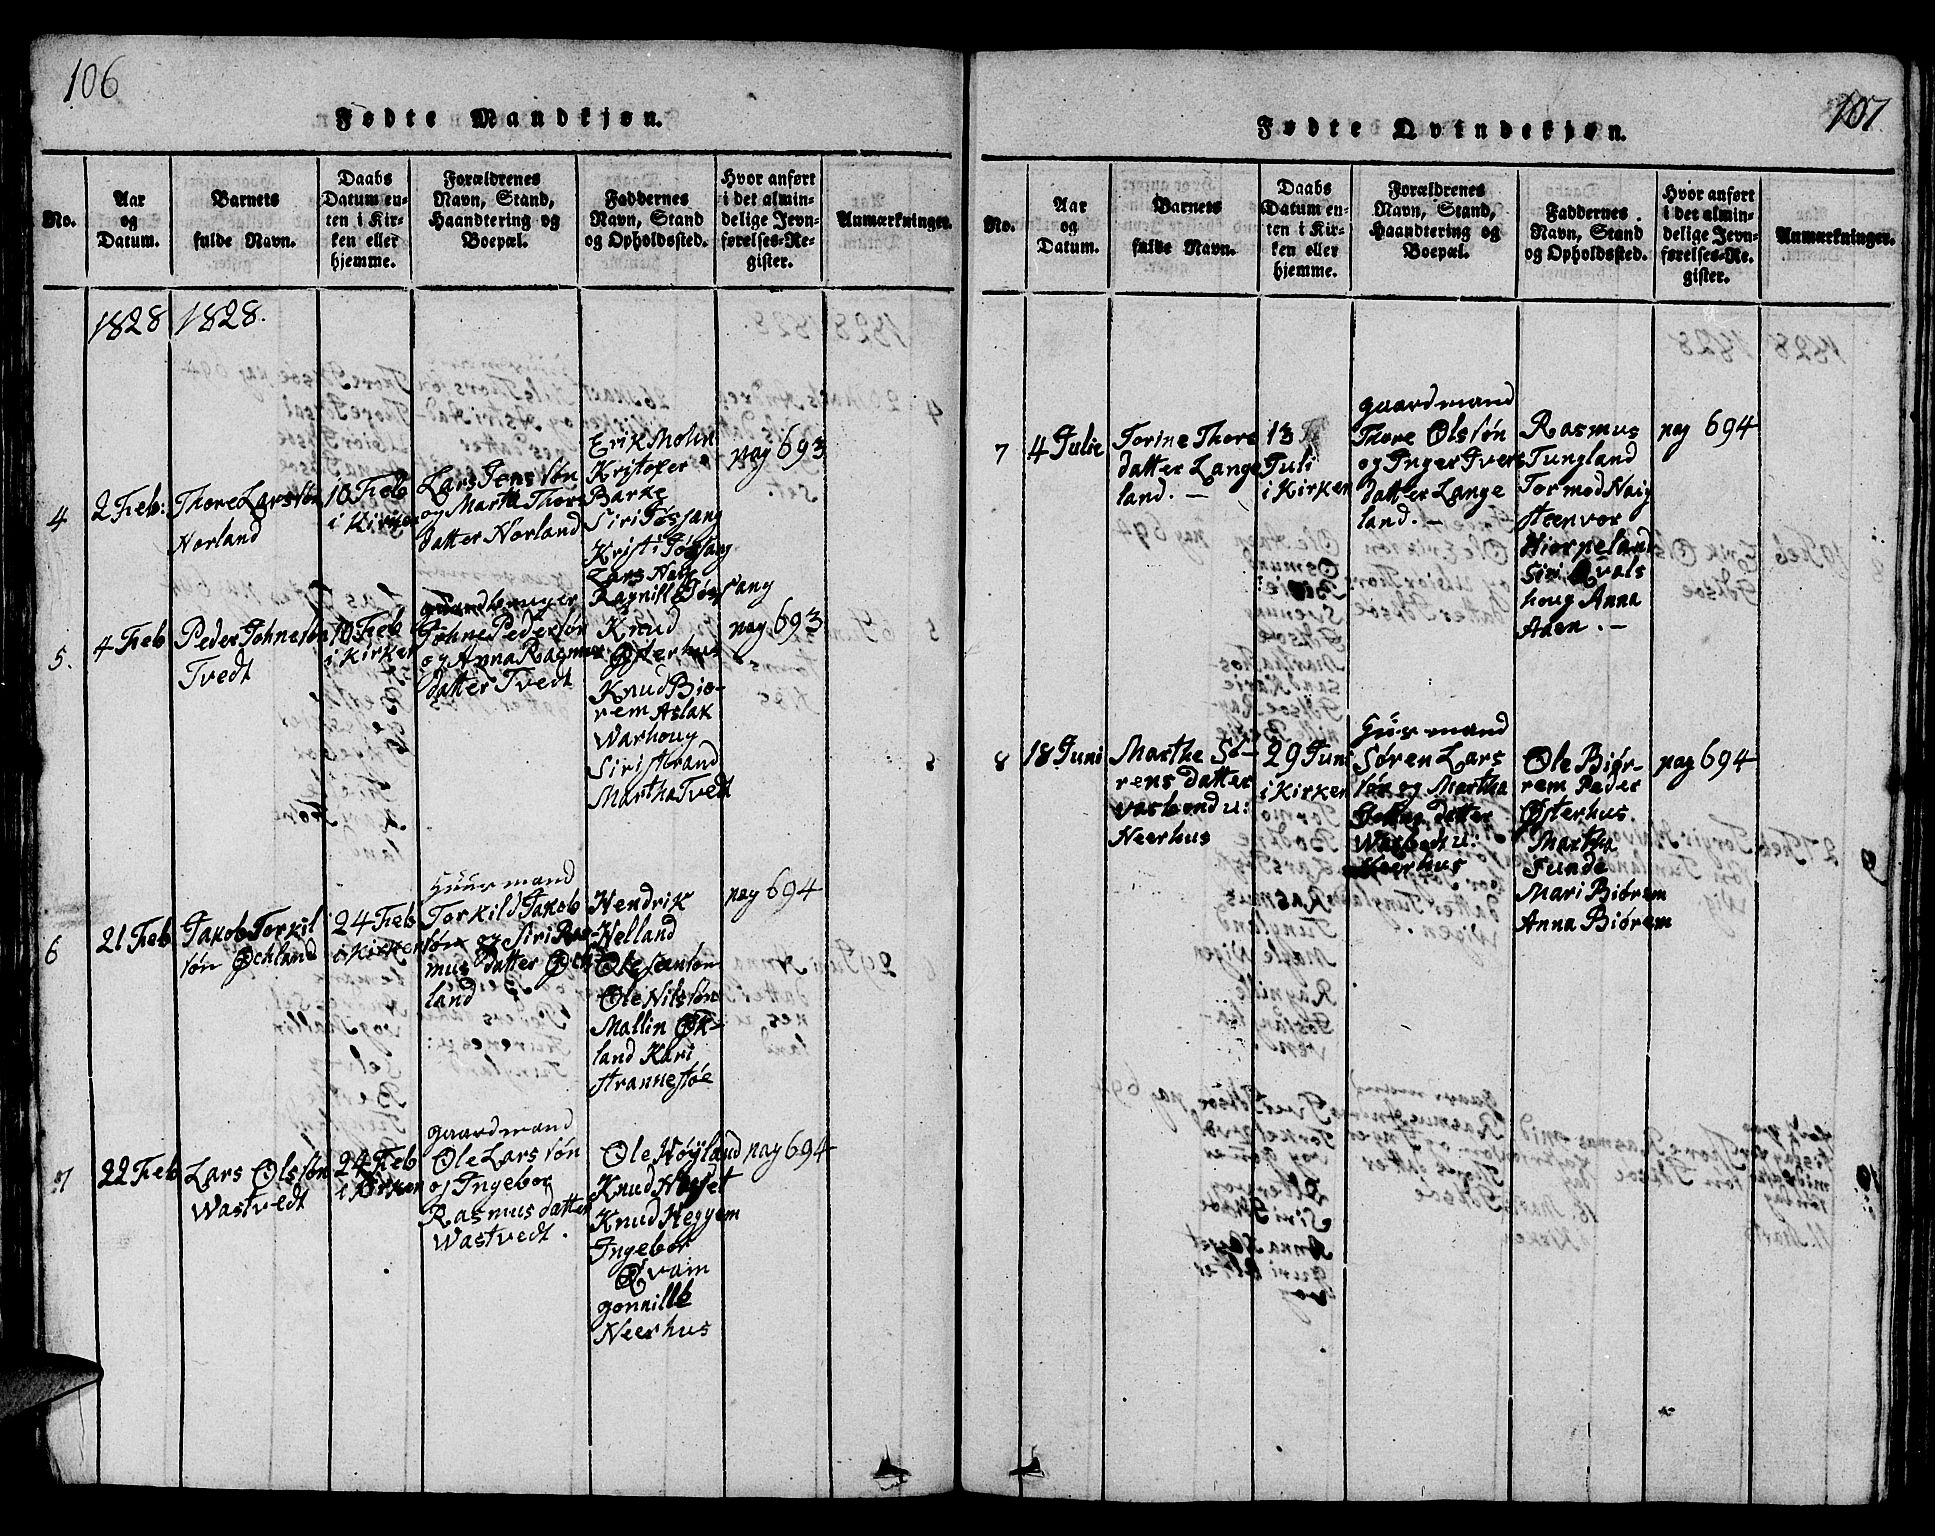 106
Fødte Mandkjøn.
No.
Aar
og
Datum.
Barnets
fulde Navn.
Daabs
Datum en-
ten i Kir-
ken eller
hjemme.
Forældrenes
Navn, Stand,
Haandtering og
Boepæl.
Faddernes
Navn, Stand
og Opholdssted.
Hvor anført
i det almin-
delige Jevn-
førelses-Re-
gister.
Anmærkninger.
1828
1828.
4
2 Feb:
Thore Larssøn
Norland
10 Feb
i Kirken
Lars Jenssøn
og Martha Thors
datter Norland
Erik Molin
Kristofer
Barke
Siri Føssang
Kristi Føssang
Lars Nag
Ragnill Føssang
pag 693
5.
4 Feb
Peder Johnesøn
Tvedt
10 Feb
i Kirken
gaardbruger
Johne Pedersøn
og Anna Rasmus
datter Tvedt
Knud
Østerhus
Knud Biø-
rem Aslak
Warhoug
Siri Strand
Martha Tvedt
pag 693
6
21 Feb
Jakob Torkil
søn Øchland
24 Feb
i Kirken
Huus mand
Torkild Jakob
søn og Siri Ras-
mus datter Øch
land
Hendrik
Helland
Ole
Ole Nilssøn
Mallin Øk-
land Kari
Strannestøe
pag 694
7
22 Feb
Lars Olssøn
Wastvedt
24 Feb
i Kirken
gaardmand
Ole Larssøn
og Ingebor
Rasmus datter
Wastvedt.
Ole Høyland
Knud Næset
Knud Heggem
Ingebor
Qvam
gonnille
Neerhus
pag 694
107
Fødte Qvindekjøn.
No.
Aar
og
Datum.
Barnets
fulde Navn.
Daabs
Datum en-
ten i Kir-
ken eller
hjemme.
Forældrenes
Navn, Stand,
Haandtering og
Boepæl.
Faddernes
Navn, Stand
og Opholdssted.
Hvor anført
i det almin-
delige Jevn-
førelses-Re-
gister.
Anmærkninger.
7
4 Julie
Torine Thore
datter Lange
land. —
13
Juli
i Kirken
gaardmand
Thore Olssøn
og Inger Ivers
datter Lange
land. —
Rasmus
Tungland
Tormod Naig
Steenvor
Hiorpeland
Siri Qvals
houg Anna
Aaen. —
pag 694
8
18 Juni
Marthe Sø-
rens datter
Wasbond u:
Neerhus
29 Juni
i Kirken
Huus mand
Søren Lars
søn og Martha
datter
u:
Neerhus
Ole Biør-
rem Peder
Østerhus.
Martha
Sunde
Mari Biørem
Anna Biørem
pag 694